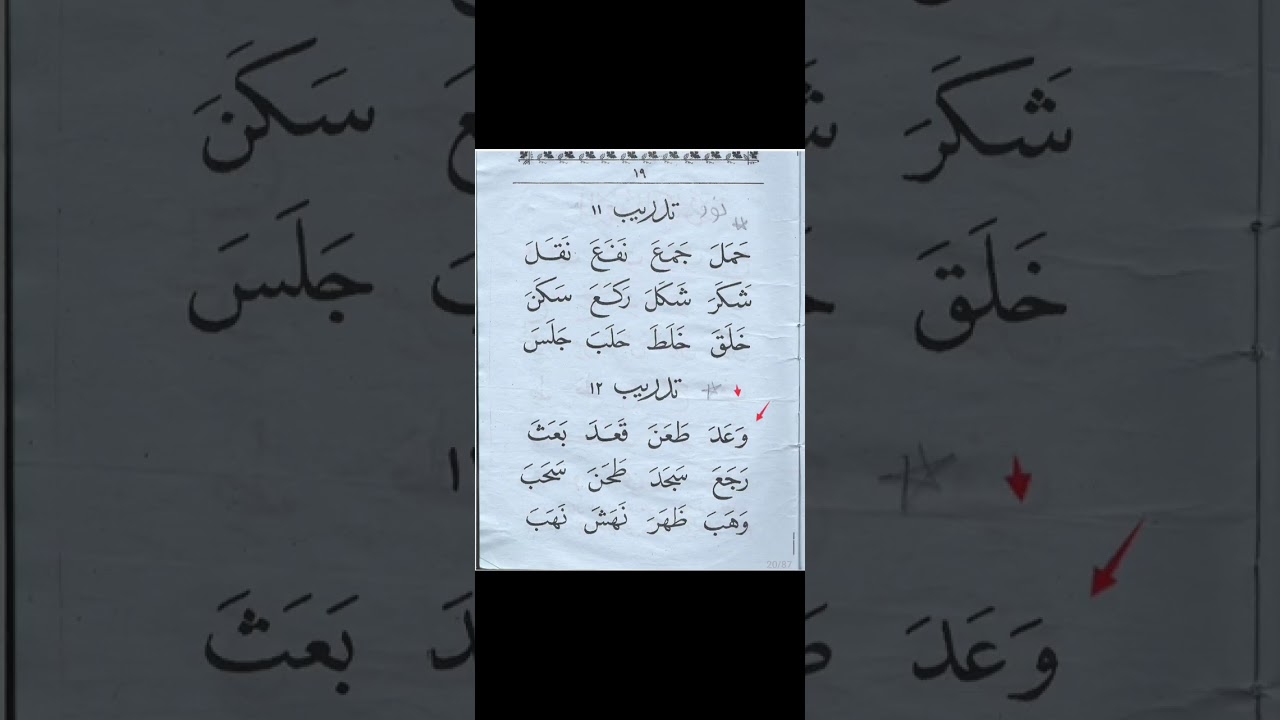 ١٩
تدريب ١١
حَمَلَ جَمَعَ نَفَعَ نَقَلَ
شَكَرَ شَكَلَ رَكَعَ سَكَنَ
خَلَقَ خَلَطَ حَلَبَ جَلَسَ
تدريب ١٢
وَعَدَ طَعَنَ قَعَدَ بَعَثَ
رَجَعَ سَجَدَ طَحَنَ سَحَبَ
وَهَبَ ظَهَرَ نَهَشَ نَهَبَ
20/87